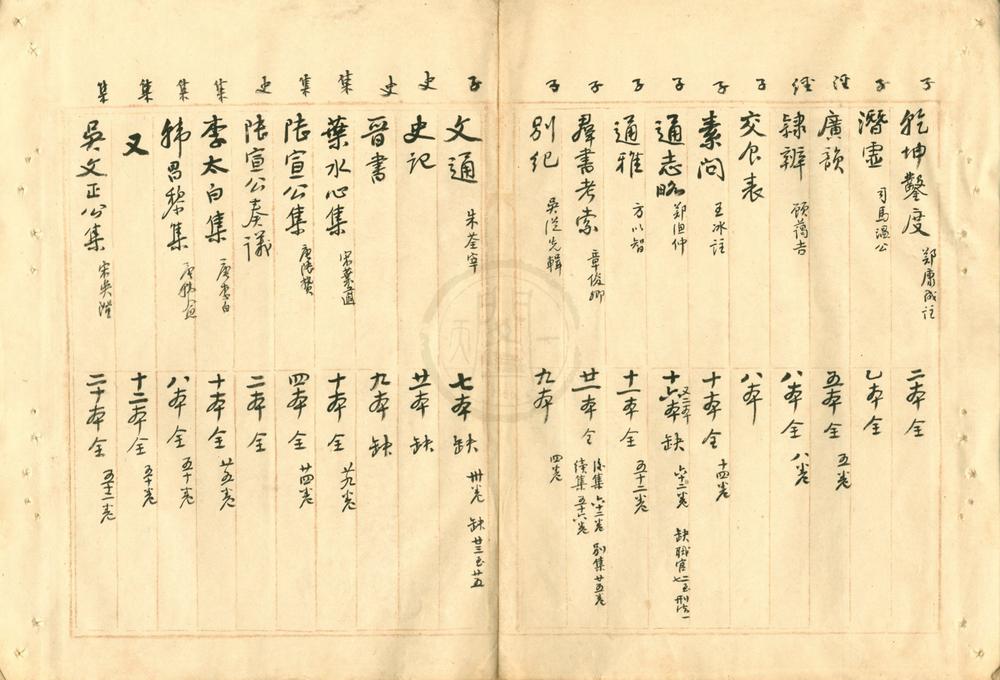 子 乾坤鑿度 鄭康成註 二本 全
子 潛虛 司馬溫公 乙本 全
經 廣韻 五本 全 五卷
經 隸辨 顧藹吉 八本 全 八卷
子 交食表 八本
子 素問 王冰註 十本 全 十四卷
子 通志略 鄭漁仲 十六本 又二本 缺 六十二卷 缺職官二至七 刑法一
子 通雅 方以智 十一本 全 五十二卷
子 羣書考索 章俊卿 廿一本 全 後集六十二卷 別集廿五卷 續集五十六卷
子 別紀 吳從先輯 九本 四卷
子 文通 朱荃宰 七本 缺 卅卷 缺廿三至廿五
史 史記 廿本 缺
史 晉書 九本 缺
集 葉水心集 宋葉適 十本 全 廿九卷
集 陸宣公集 唐陸贄 四本 全 廿四卷
史 陸宣公奏議 二本 全
集 李太白集 唐李白 十本 全 廿五卷
集 韩昌黎集 唐韓愈 八本 全 五十卷
集 又 十二本 全 五十卷
集 吳文正公集 宋吳澄 二十本 全 五十三卷